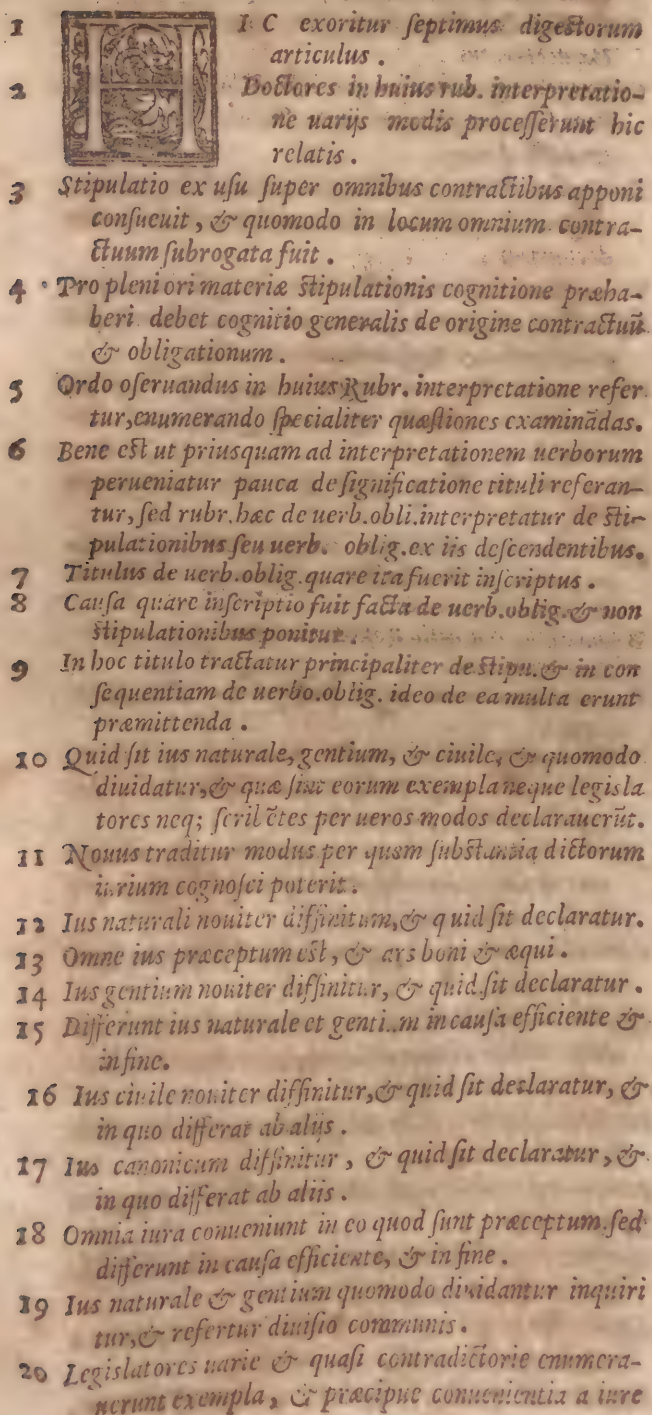 1 HI C exoritur ſeptimus digeſtorum
articulus .
2 Doctores in huius rub. interpretatio-
ne uarijs modis proceſſerunt hic
relatis .
3 Stipulatio ex uſu ſuper omnibus contractibus apponi
conſueuit , & quomodo in locum omnium contra-
ctuum ſubrogata fuit .
4 Pro pleniori materiæ ſtipulationis cognitione præha-
beri debet cognitio generalis de origine contractuū
& obligationum .
5 Ordo oſeruandus in huius Rubr. interpretatione refer
tur,enumerando ſpecialiter quæſtiones examinādas.
6 Bene eſt ut priusquam ad interpretationem uerborum
perueniatur pauca de ſignificatione tituli referan-
tur, ſed rubr. hæc de uerb.obli.interpretatur de ſti-
pulationibus ſeu uerb. oblig.ex iis deſcendentibus.
7 Titulus de uerb.oblig.quare ita fuerit inſcriptus .
8 Cauſa quare inſcriptio fuit facta de uerb.oblig.& non
ſtipulationibus ponitur .
9 In hoc titulo tractatur principaliter de ſtipu.& in con
ſequentiam de uerbo.oblig. ideo de ea multa erunt
præmittenda .
10 Quid ſit ius naturale, gentium, & ciuile, & quomodo
diuidatur,& quæ ſint eorum exempla neque legisla
tores neq; ſcribētes per ueros modos declarauerūt.
11 Nouus traditur modus per quem ſubſtantia dictorum
iurium cognoſci poterit .
12 Ius naturali nouiter diffinitum,& quid ſit declaratur.
13 Omne ius præceptum eſt, & ars boni & æqui .
14 Ius gentium nouiter diffinitur, & quid ſit declaratur .
15 Differunt ius naturale et genti..m in cauſa efficiente &
in fine.
16 Ius ciuile nouiter diffinitur,& quid ſit declaratur, &
in quo differat ab alijs .
17 Ius canonicum diffinitur , & quid ſit declaratur , &
in quo differat ab aliis .
18 Omnia iura conueniunt in eo quod ſunt præceptum.ſed
differunt in cauſa efficiente, & in fine .
19 Ius naturale & gentium quomodo diuidantur inquiri
tur,& refertur diuiſio communis .
20 Legislatores uarie & quaſi contradictorie enumera-
uerunt exempla , & præcipue conuenientia a iure